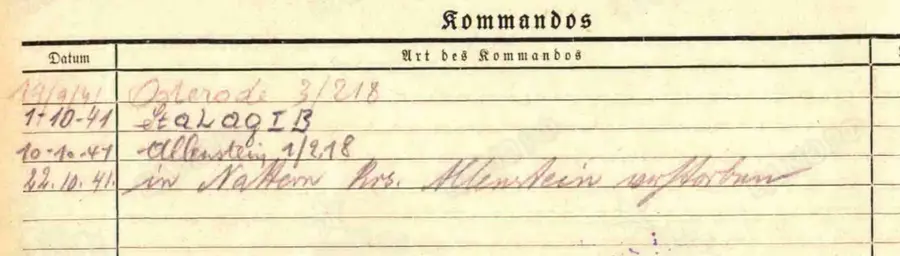 Kommandos
Datum Art des Kommandos
19/9/41 Osterode 3/218
1-10-41 StaLag I B
10-10-41 Allenstein 1/218
22.10.41. in Nattern Krs. Allenstein verstorben